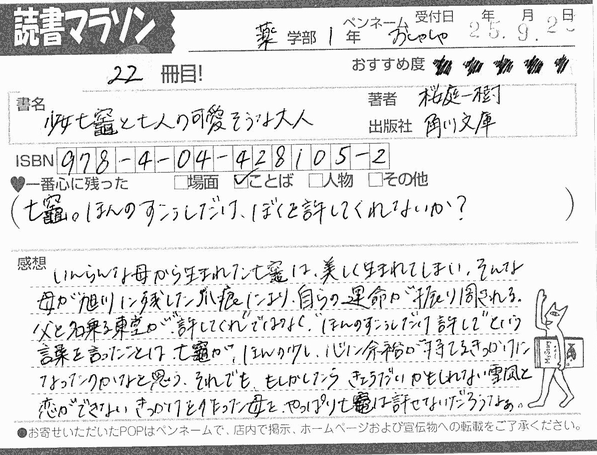 読書マラソン
薬 学部 1 年
ペンネーム おしゃしゃ
受付日 25年 9.月 2 日
22 冊目!
おすすめ度
書名 少女七竈と七人の可愛そうな大人
著者 桜庭一樹
出版社 角川文庫
ISBN 978-4-04-428105-2
♥一番心に残った □場面 ☑ことば □人物 □その他
(七竈。ほんのすこうしだけ、ぼくを許してくれないか?)
感想
いんらんな母から生まれた七竈は、美しく生まれてしまい、そんな
母が旭川に残した爪痕により、自らの運命が振り回される。
父と名乗る東堂が"許してくれ"ではなく、"ほんのすこうしだけ許して"という
言葉を言ったことは七竈が、ほんの少し、心に余裕が持てるきっかけに
なったのかなと思う。それでも、もしかしたら きょうだいかもしれない雪風と
恋ができないきっかけを作った母を、やっぱり七竈は許せないだろうなぁ。
●お寄せいただいたPOPはペンネームで、店内で掲示、ホームページおよび宣伝物への転載をご了承ください。